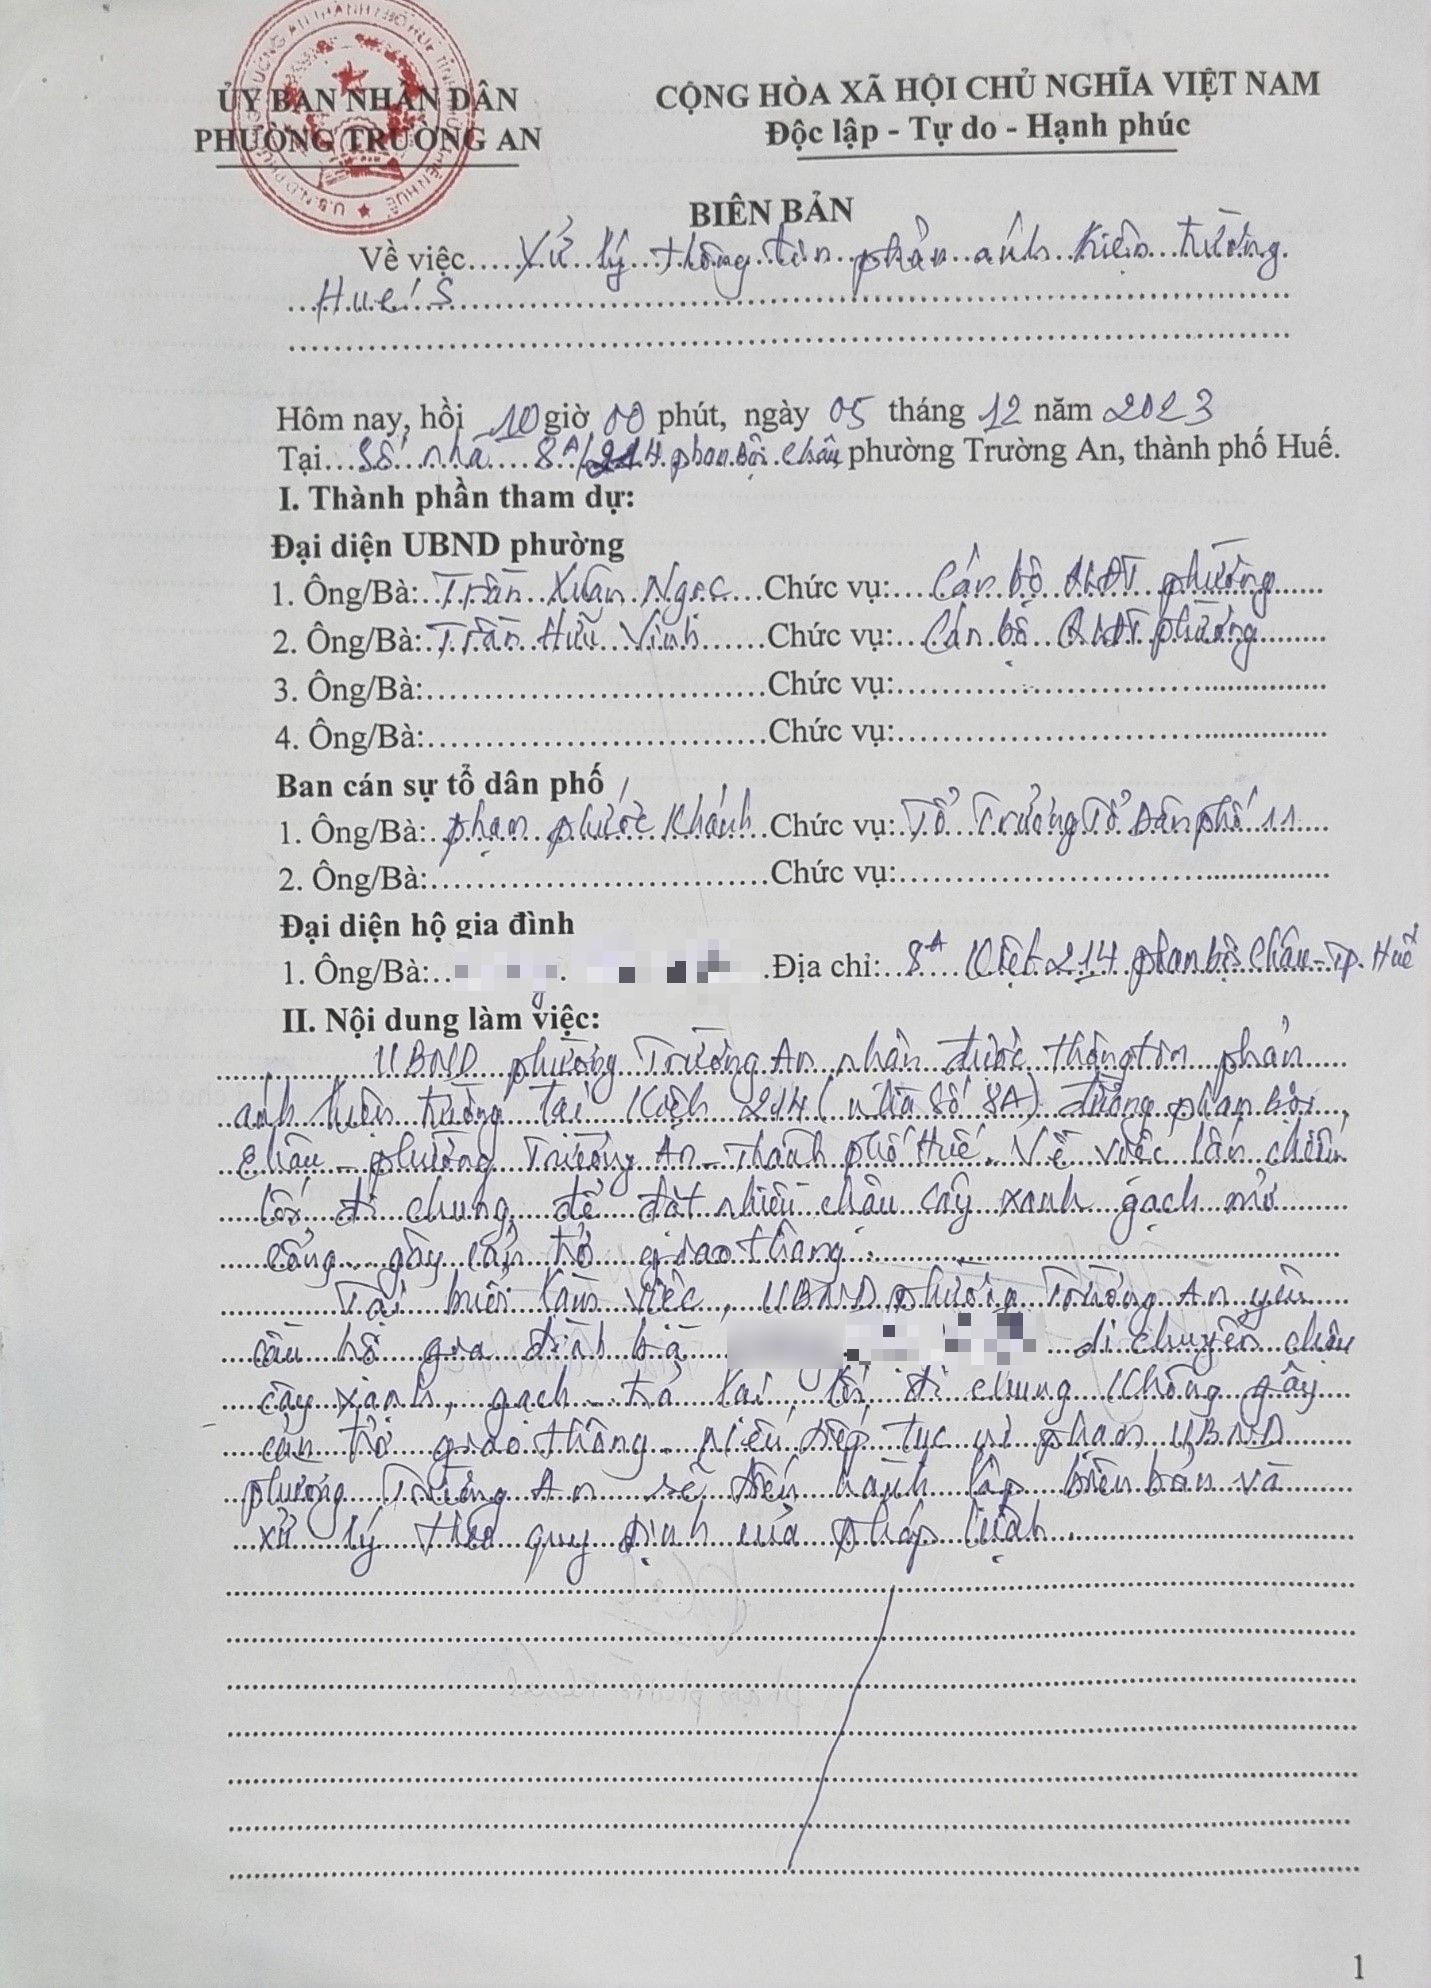 ỦY BAN NHÂN DÂN
PHƯỜNG TRƯỜNG AN
CỘNG HÒA XÃ HỘI CHỦ NGHĨA VIỆT NAM
Độc lập - Tự do - Hạnh phúc
BIÊN BẢN
Về việc.....Xử lý thông tin phản ánh hiện trường
Huế S
Hôm nay, hồi 10 giờ 00 phút, ngày 05 tháng 12 năm 2023
Tại...Số nhà 8A/214 phan bội Châu phường Trường An, thành phố Huế.
I. Thành phần tham dự:
Đại diện UBND phường
1. Ông/Bà: Trần Xuân Ngọc Chức vụ: Cán bộ QLĐT phường
2. Ông/Bà: Trần Hữu Vinh Chức vụ: Cán bộ QLĐT phường
3. Ông/Bà: Chức vụ:
4. Ông/Bà: Chức vụ:
Ban cán sự tổ dân phố
1. Ông/Bà: phạm phước Khánh Chức vụ: Tổ Trưởng Tổ Dân phố 11
2. Ông/Bà: Chức vụ:
Đại diện hộ gia đình
1. Ông/Bà: Địa chỉ: 8A Kiệt 214 phan bội Châu - Tp. Huế
II. Nội dung làm việc:
UBND phường Trường An nhận được thông tin phản
ánh hiện trường tại Kiệt 214 (nhà số 8A) đường phan bội
Châu - phường Trường An - Thành phố Huế. Về việc lấn chiếm
lối đi chung, để đặt nhiều chậu cây xanh gạch mở
cổng gây cản trở giao thông.
Tại buổi làm việc, UBND phường Trường An yêu
cầu hộ gia đình bà di chuyển chậu
cây xanh, gạch trả lại lối đi chung không gây
cản trở giao thông. Nếu tiếp tục vi phạm UBND
phường Trường An sẽ tiến hành lập biên bản và
xử lý theo quy định của pháp luật.
1